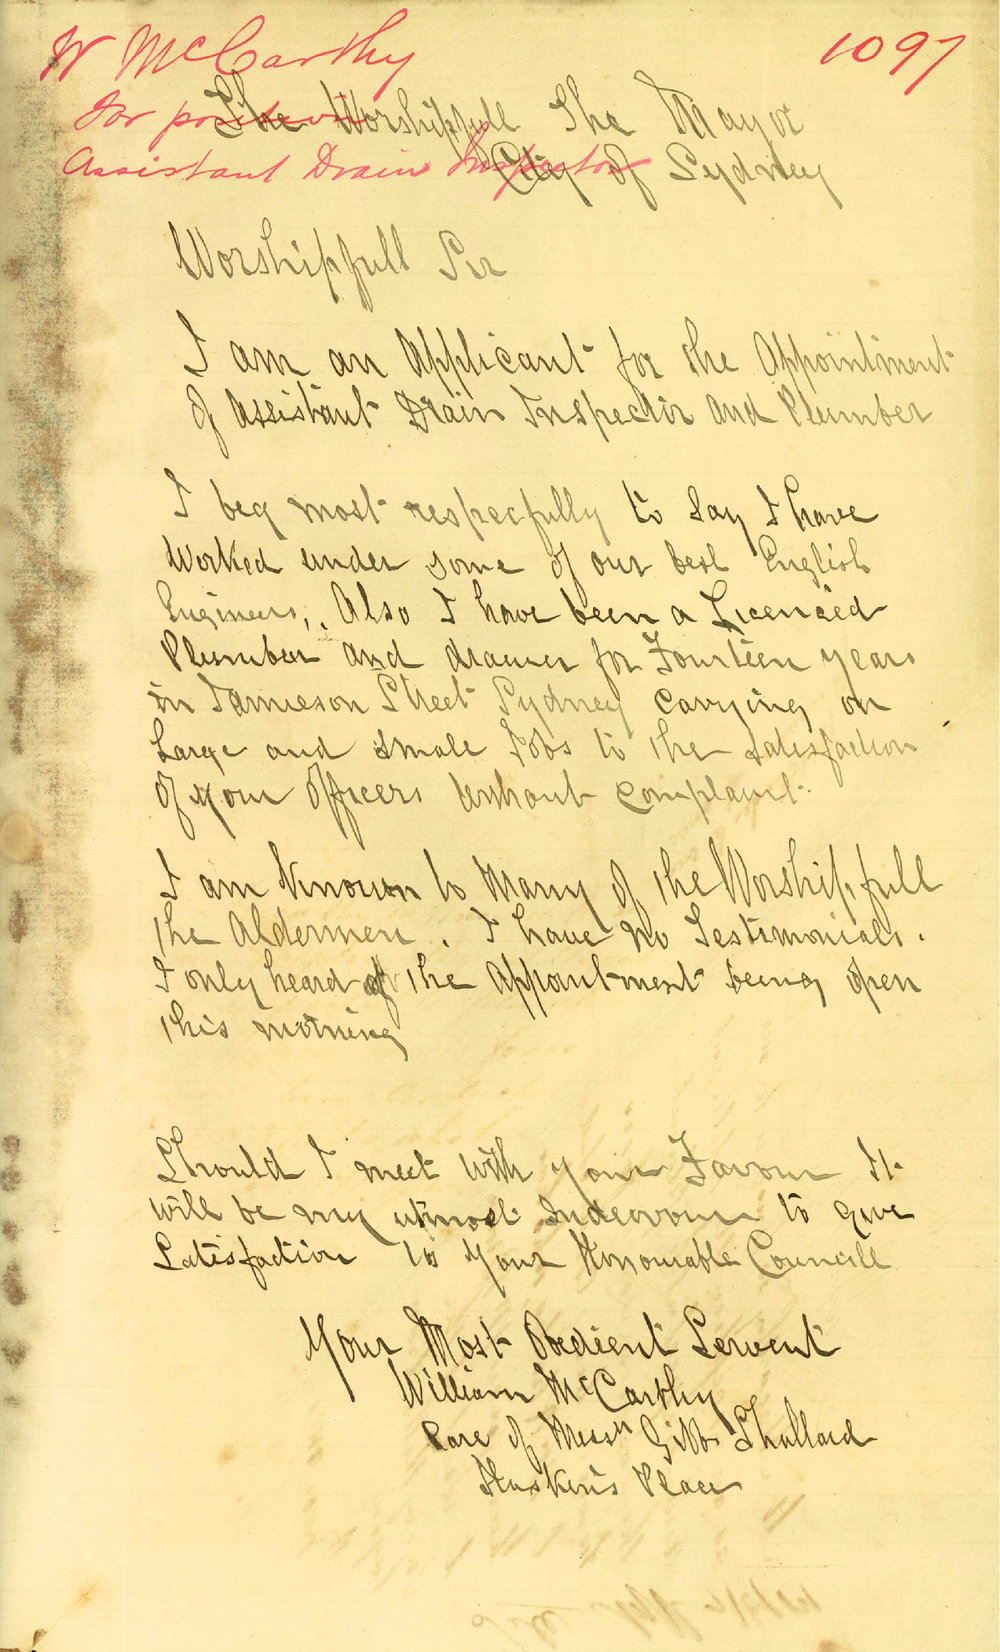 W McCarthy
1097
for position
Assistant Drain Inspector
The Worshipfull The Mayor
City of Sydney
Worshipfull Sir
I am an Applicant for the Appointment
of Assistant Drain Inspector and Plumber
I beg most respecfully to Say I have
Worked under some of our best English
Engineers, Also I have been a Licenced
Plumber and drainer for Fourteen years
in Jamieson Street Sydney Carrying on
Large and Small Jobs to the Satisfaction
of your Officers Without Complaint.
I am Known to Many of the Worshipfull
the Aldermen. I have no Testimonials.
I only heard of the Appointment being open
this morning
Should I meet with your Favour It
will be my utmost Indeavour to give
Satisfaction to Your Honourable Councill
Your Most Obedient Servent
William McCarthy
Care of Messrs Gibb Shallard
Hoskins Place